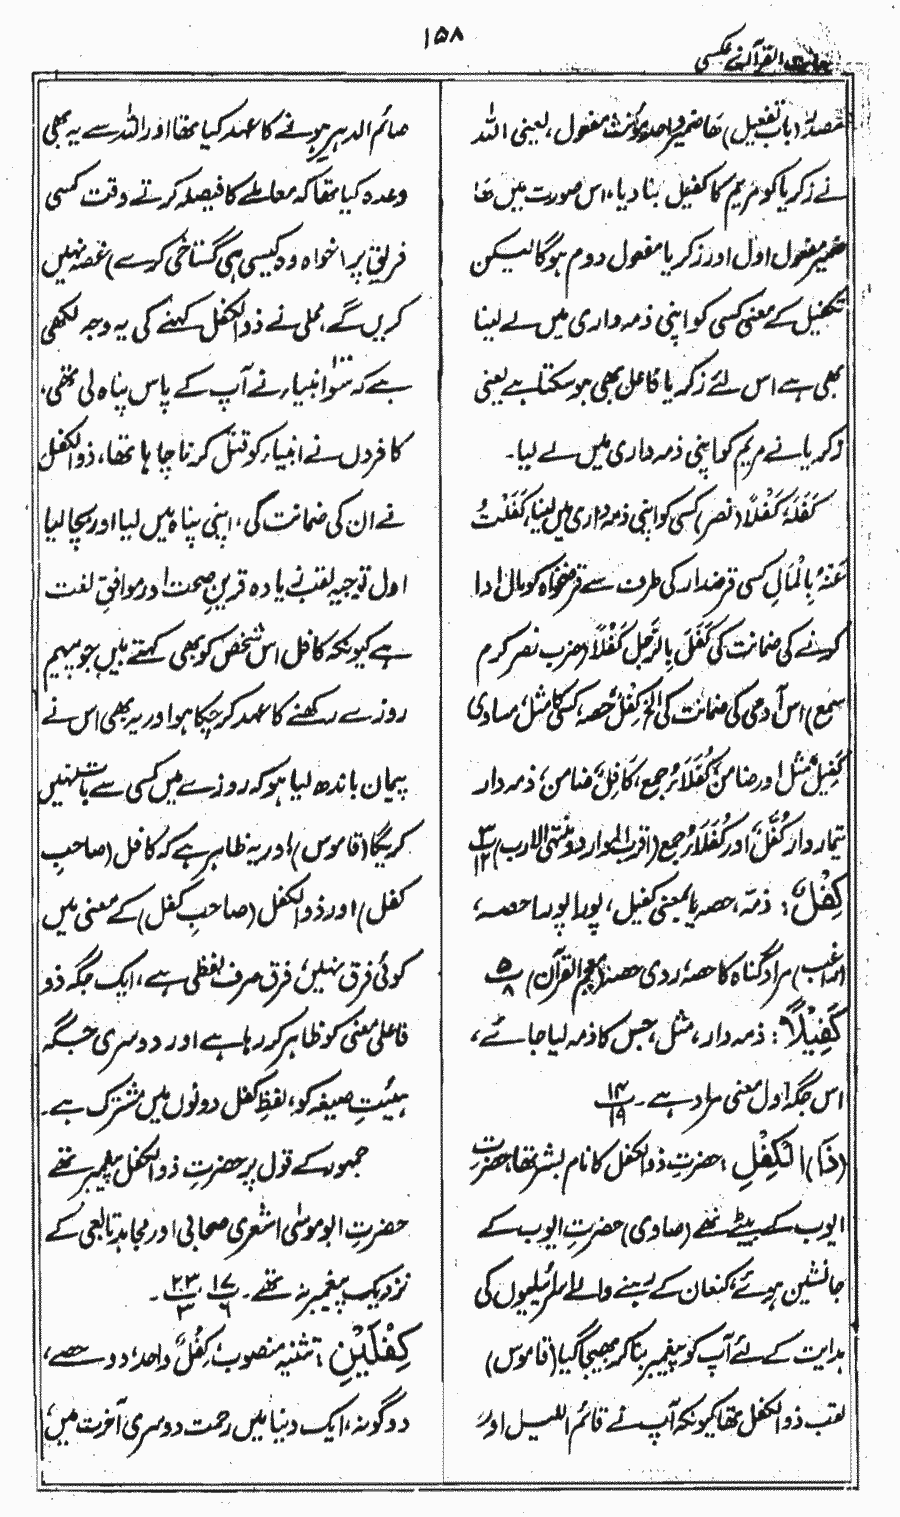 ۱۵۸
لغات القرآن عکسی
مصدر (باب تفعیل) ھا ضمیر واحد مؤنث مفعول، یعنی اللہ
نے زکریا کو مریم کا کفیل بنا دیا، اس صورت میں ھَا
ضمیر مفعول اول اور زکریا مفعول دوم ہوگا لیکن
تکفیل کے معنی کسی کو اپنی ذمہ داری میں لے لینا
بھی ہے اس لئے زکریا فاعل بھی ہو سکتا ہے یعنی
زکریا نے مریم کو اپنی ذمہ داری میں لے لیا۔
کَفَلَہٗ کَفْلًا (نصر) کسی کو اپنی ذمہ داری میں لینا، کَفَلْتُ
عَنْہُ بِالْمَالِ کسی قرضدار کی طرف سے قرضخواہ کو مال ادا
کرنے کی ضمانت کی کَفَلَ بِالرَّجُلِ کَفْلًا (ضرب نصر کرم
سمع) اس آدمی کی ضمانت کی الخ کِفْلٌ حصہ، کسی کا مثل، مساوی
کَفِیلٌ مثل اور ضامن کُفَلَاءُ جمع، کَافِلٌ ضامن، ذمہ دار
تیماردار کُفَّلٌ اور کُفَلَاءُ جمع (اقرب الموارد و منتہی الارب) ۳/۱۲
کِفْلٌ: ذمّہ، حصہ یا بمعنی کفیل، پورا پورا حصہ،
(راغب) مراد گناہ کا حصہ، ردی حصہ (معجم القرآن) ۵/۸
کَفِیْلًا: ذمہ دار، مثل، جس کا ذمہ لیا جائے،
اس جگہ اول معنی مراد ہے۔ ۱۴/۱۹
(ذَا) الْکِفْلِ: حضرتِ ذوالکفل کا نام بشر تھا، حضرت
ایوب کے بیٹے تھے (صاوی) حضرتِ ایوب کے
جانشین ہوئے، کنعان کے رہنے والے اسرائیلیوں کی
ہدایت کے لئے آپ کو پیغمبر بنا کر بھیجا گیا (قاموس)
لقب ذوالکفل تھا کیونکہ آپ نے قائم اللیل اور
صائم الدہر ہونے کا عہد کیا تھا اور اللہ سے یہ بھی
وعدہ کیا تھا کہ معاملے کا فیصلہ کرتے وقت کسی
فریق پر (خواہ وہ کیسی ہی گستاخی کرے) غصہ نہیں
کریں گے، محلی نے ذوالکفل کہنے کی یہ وجہ لکھی
ہے کہ سو۱۰۰ انبیاء نے آپ کے پاس پناہ لی تھی،
کافروں نے انبیاء کو قتل کرنا چاہا تھا، ذوالکفل
نے ان کی ضمانت کی، اپنی پناہ میں لیا اور بچا لیا
اول توجیہِ لقب زیادہ قرینِ صحت اور موافقِ لغت
ہے کیونکہ کافل اس شخص کو بھی کہتے ہیں جو پیہم
روزے رکھنے کا عہد کر چکا ہو اور یہ بھی اس نے
پیمان باندھ لیا ہو کہ روزے میں کسی سے بات نہیں
کریگا (قاموس) اور یہ ظاہر ہے کہ کافل (صاحبِ
کفل) اور ذوالکفل (صاحبِ کفل) کے معنی میں
کوئی فرق نہیں، فرق صرف لفظی ہے، ایک جگہ ذو
فاعلی معنی کو ظاہر کر رہا ہے اور دوسری جگہ
ہیئتِ صیغہ کو، لفظِ کفل دونوں میں مشترک ہے۔
جمہور کے قول پر حضرتِ ذوالکفل پیغمبر تھے
حضرتِ ابو موسٰی اشعری صحابی اور مجاہد تابعی کے
نزدیک پیغمبر نہ تھے۔ ۱۷/۶، ۲۳/۳۔
کِفْلَیْنِ: تثنیہ منصوب، کِفْلٌ واحد، دو حصے،
دوگونہ، ایک دنیا میں رحمت دوسری آخرت میں،